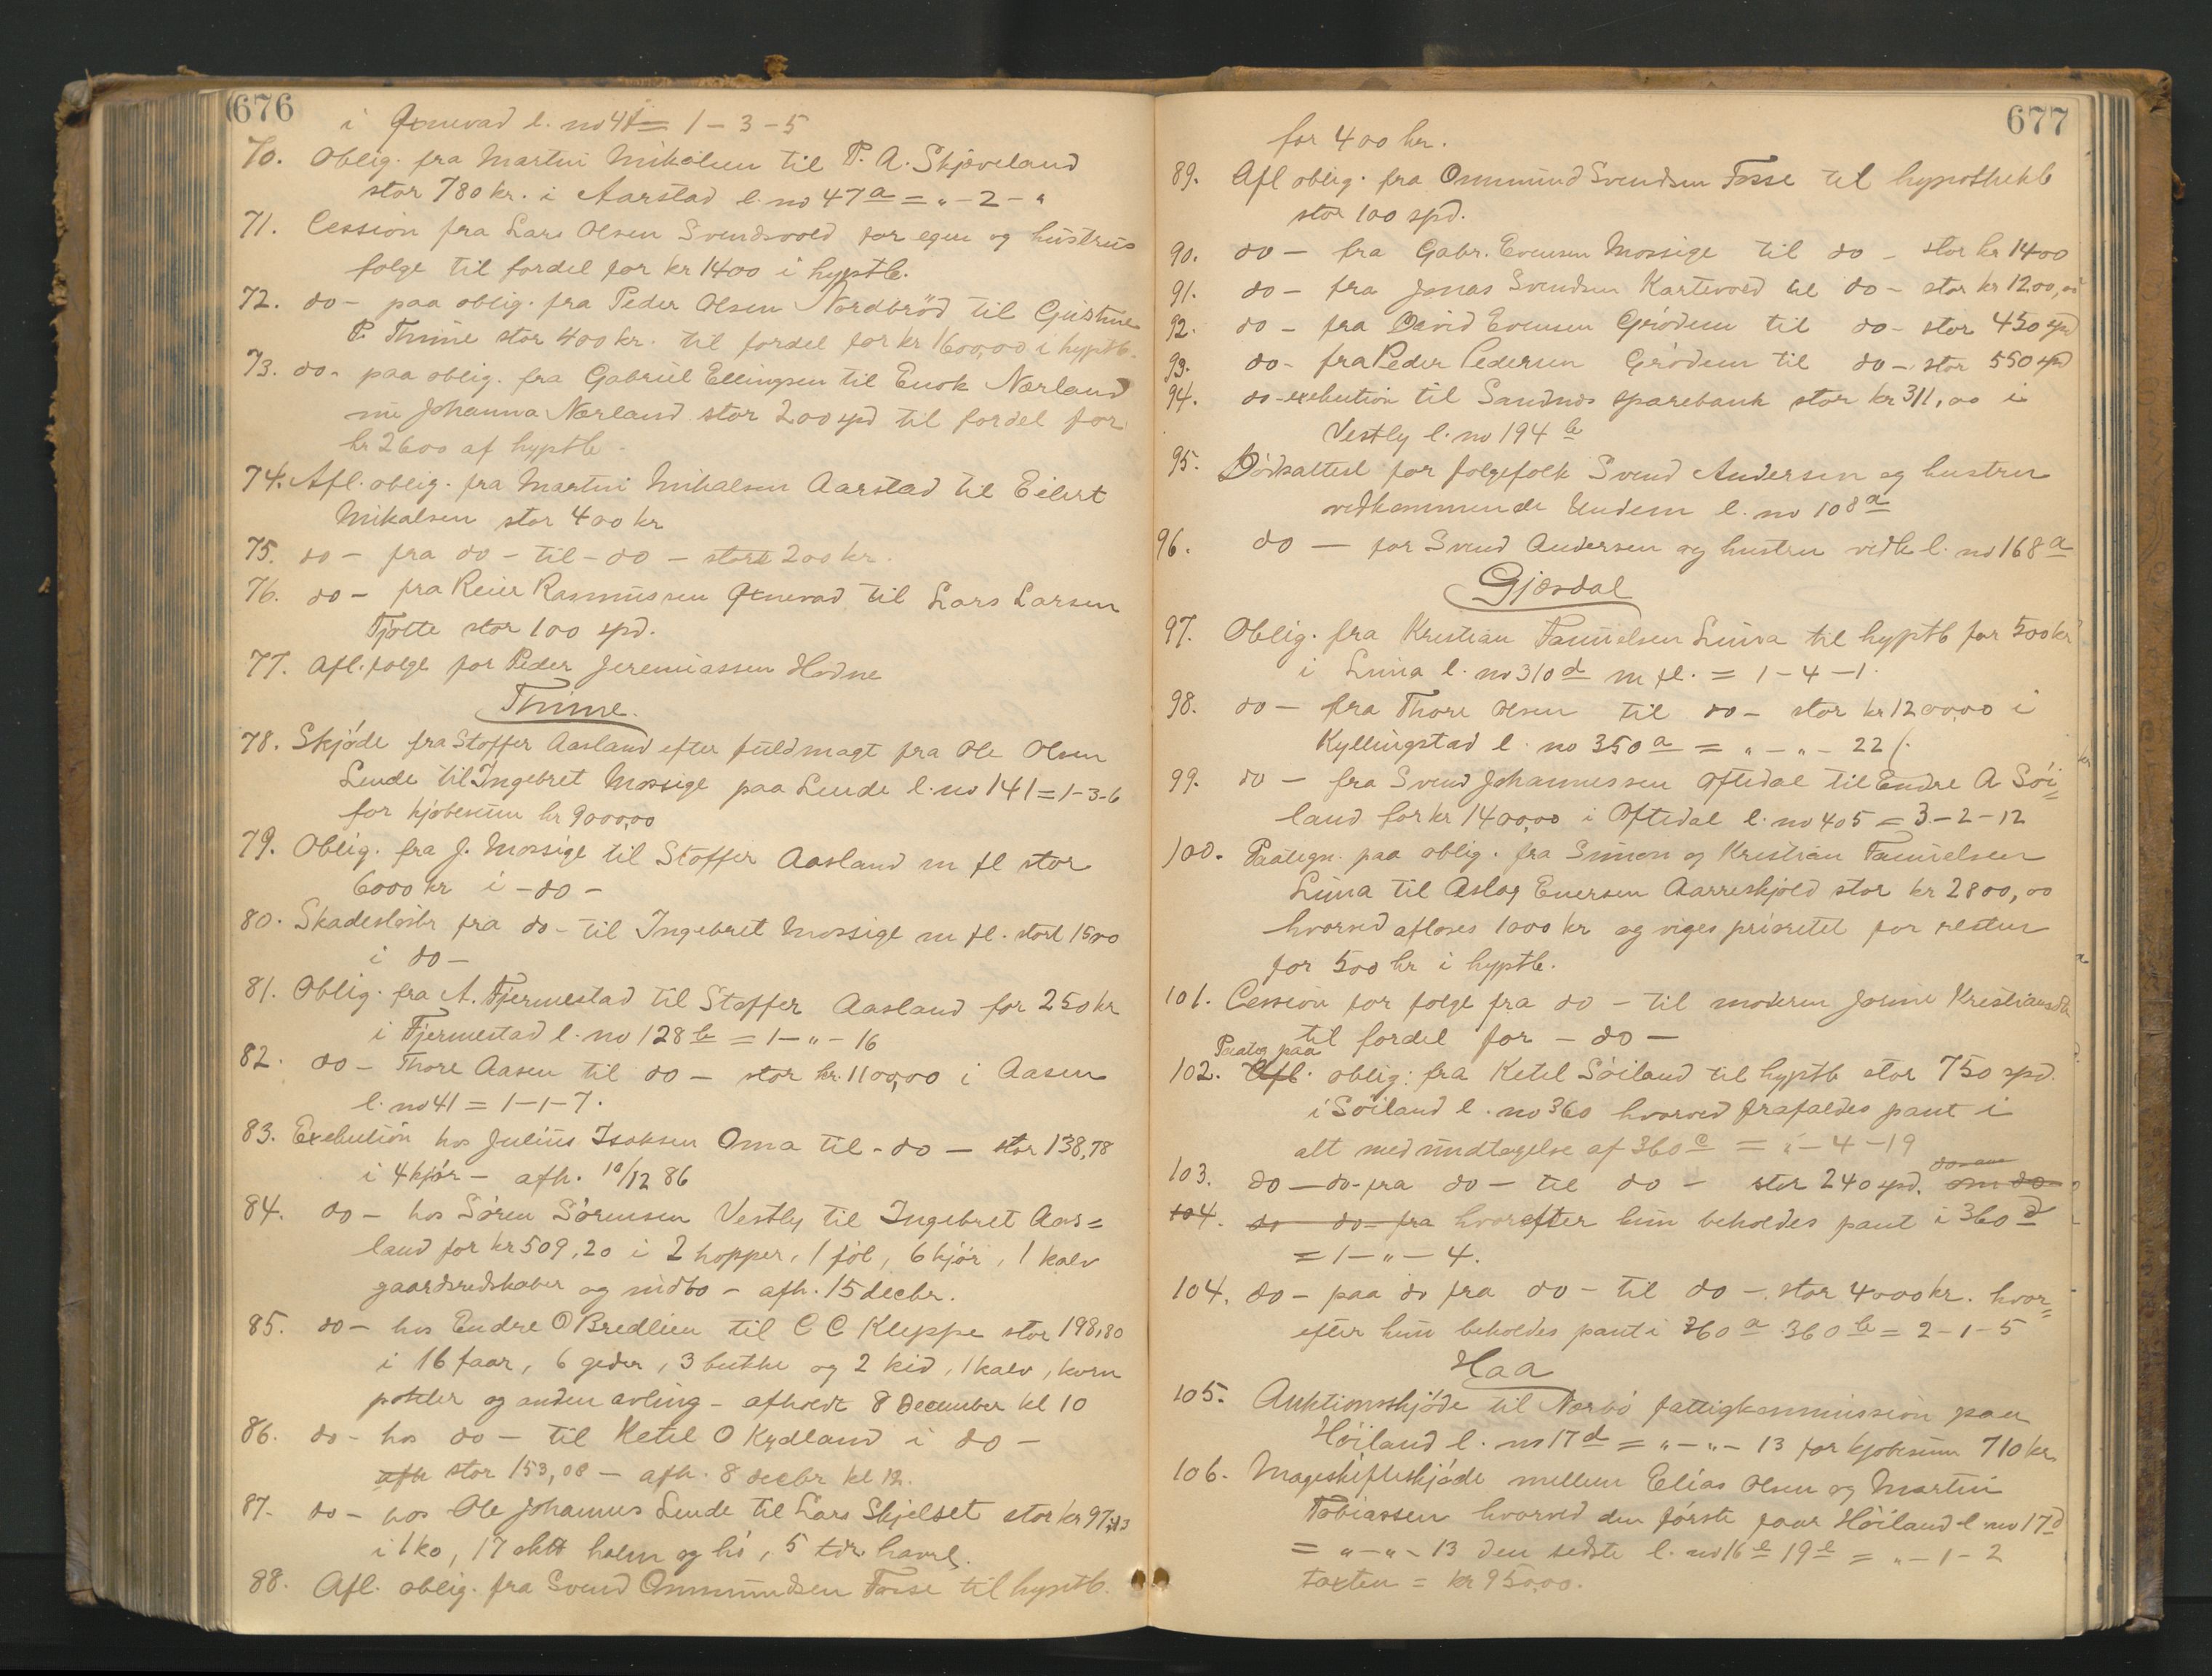 676
i Qvnevad l. no 41 = 1 - 3 - 5
70. Oblig. fra Martin Mikalsen til P. A. Skjæveland
stor 780 kr. i Aarstad l. no 47 a = " - 2 - "
71. Cession fra Lars Olsen Svendsvold for egen og hustrus
folge til fordel for kr 1400 i hyptb.
72. do - paa oblig. fra Peder Olsen Nordbröd til Gustine
P. Thime stor 400 kr. til fordel for kr 1600,00 i hyptb.
73. do - paa oblig. fra Gabriel Ellingsen til Enok Nærland
nu Johanna Nærland stor 200 spd til fordel for
kr 2600 af hyptb -
74. Afl. oblig. fra Martin Mikalsen Aarstad til Eilert
Mikalsen stor 400 kr
75. do - fra do - til - do - stor 200 kr.
76. do - fra Reier Rasmussen Qvnevad til Lars Larsen
Tjøtte stor 100 spd.
77. Afl. folge for Peder Jeremiassen Hodne
Thime.
78. Skjöde fra Stoffer Aasland efter fuldmagt fra Ole Olsen
Lende til Ingebret Mossige paa Lende l. no 141 = 1-3-6
for kjøbesum kr 9000,00
79. Oblig. fra J. Mossige til Stoffer Aasland m fl stor
6000 kr i - do -
80. Skadesløsbr fra do - til Ingebret Mossige m fl. stort 1500
i do -
81. Oblig. fra A. Fjermestad til Stoffer Aasland for 250 kr
i Fjermestad l. no 128 b = 1 - " - 16
82. do - Thore Aasen til do - stor kr. 1100,00 i Aasen
l. no 41 = 1-1-7.
83. Exekution hos Julius Isaksen Oma til - do - stor 138,78
i 4 kjör - afh. 10/12 86
84. do - hos Sören Sörensen Vestly til Ingebret Aas=
land for kr 509,20 i 2 hopper, 1 föl, 6 kjör, 1 kalv
gaardsredskaber og indbo - afh. 15 decbr.
85. do - hos Endre O Bredlien til C C Kleppe stor 198,80
i 16 faar, 6 geder, 3 bukke og 2 kid, 1 kalv, korn
poteter og anden avling - afholdt 8 December kl 10
86. do - hos do - til Ketil O Kydland i do -
afh stor 153,08 - afh. 8 decbr kl 12.
87. do - hos Ole Johannes Lende til Lars Skjelset stor kr 97,13
i 1 ko, 17 halm og hö, 5 tdr havre.
88. Afl. oblig. fra Svend Ommundsen Tosse til hyptb.
677
for 400 kr.
89. Afl oblig. fra Ommund Svendsen Tosse til hypothekb
stor 100 spd.
90. do - fra Gabr. Evensen Mossige til do - stor kr 1400
91. do - fra Jonas Svendsen Kartevold til do - stor kr 1200,00
92. do - fra David Evensen Grödem til do - stor 450 spd
93. do - fra Peder Pedersen Grödem til do - stor 550 spd
94. do - exekution til Sandnæs sparebank stor kr 311,00 i
Vestly l. no 194 b
95. Dödsattest for folgefolk Svend Andersen og hustru
vedkommende Undem l. no 108 a
96. do - for Svend Andersen og hustru vedk l. no 168 a
Gjæsdal
97. Oblig. fra Kristian Tanielsen Lima til hyptb for 500 kr
i Lima l. no 310 d m fl. = 1 - 4 - 1.
98. do - fra Thore Olsen til do - stor kr 1200,00 i
Kyllingstad l. no 350 a = " - " - 22
99. do - fra Svend Johannessen Oftedal til Endre A Söi=
land for kr 1400,00 i Oftedal l. no 405 = 3 - 2 - 12
100. Paategn. paa oblig. fra Simon og Kristian Tanielsen
Lima til Aslag Enersen Aarreskjold stor kr 2800,00
hvorved afloses 1000 kr og viges prioritet for resten
for 500 kr i hyptb.
101. Cession for folge fra do - til moderen Josine Kristiansdtr
til fordel for - do -
Paateg paa
102. Afl. oblig. fra Ketel Söiland til hyptb stor 750 spd.
i Söiland l. no 360 hvorved frafaldes pant i
alt med undtagelse af 360 e = " - 4 - 19
103. do - do - fra do - til do - stor 240 spd. om do
104. do do - fra hvorefter kun beholdes pant i 360 d
= 1 - " - 4.
104. do - paa do fra do - til do - stor 4000 kr. hvor=
efter kun beholdes pant i 360 a 360 b = 2 - 1 - 5
Haa
105. Auktionsskjöde til Nærbö fattigkommission paa
Höiland l. no 17 d = " - " - 13 for kjøbesum 710 kr.
106. Mageskifteskjöde mellem Elias Olsen og Martin
Tobiassen hvorved den förste faar Höiland l no 17 d
= " - " - 13 den sidste l. no 16 e 19 e = " - 1 - 2
taxten = kr 950,00.